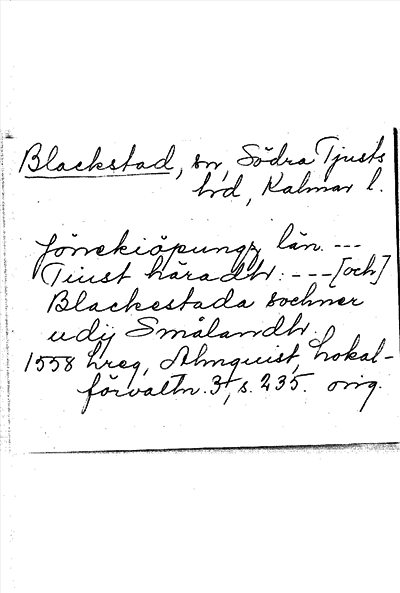 Blackstad, sn, Södra Tjusts
hd, Kalmar l.
Jönekiöpungz län. ---
Tiust häradtr: --- [och]
Blackestada sochner
udij Smålandtr.
1558 hreg, Almquist, Lokal-
förvaltn. 3, s. 235. orig.